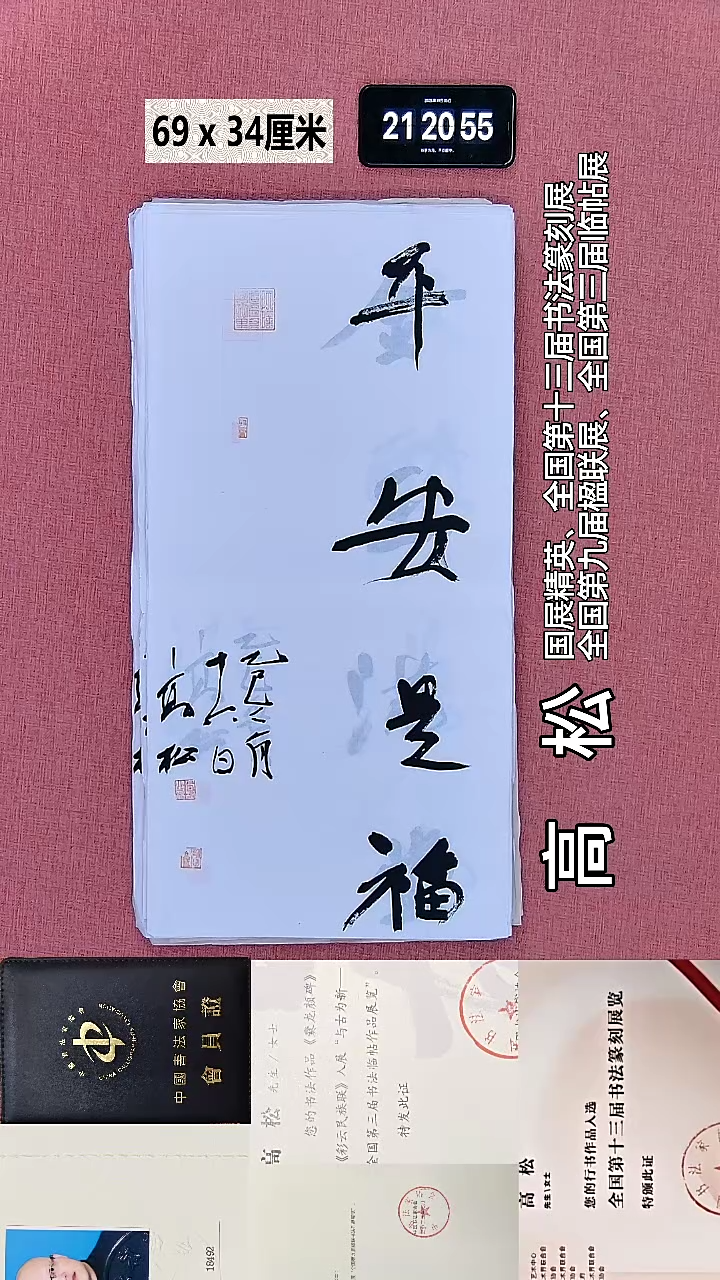 69 x 34厘米
21 20 55
平安是福
乙巳八月
十六日
高松
国展精英、全国第十三届书法篆刻展
全国第九届楹联展、全国第三届临帖展
高 松
中國書法家協會
會員證
高 松 先生/女士
您的书法作品《爨龙颜碑》
《彩云民族联》入展“与古为新——
全国第三届书法临帖作品展览”。
特发此证
高 松
先生\女士
您的行书作品入选
全国第十三届书法篆刻展览
特颁此证
18492